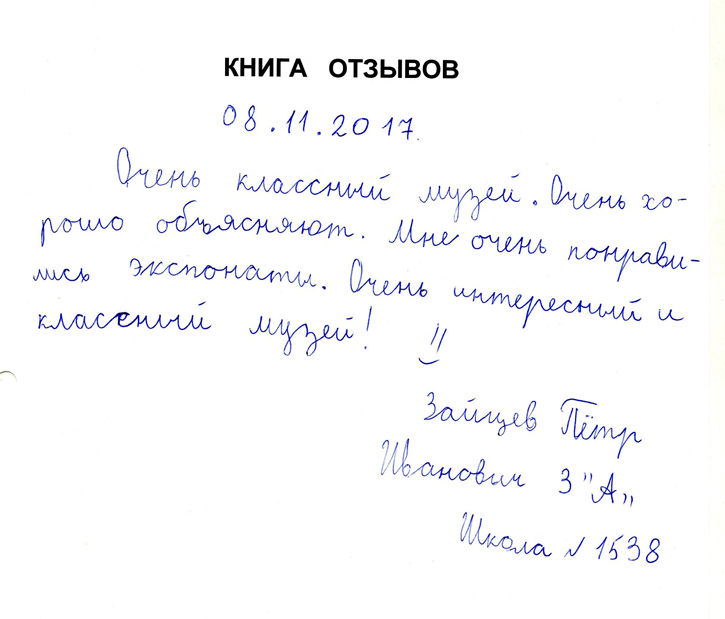 КНИГА ОТЗЫВОВ
08.11.2017.
Очень классный музей. Очень хо-
рошо объясняют. Мне очень понрави-
лись экспонаты. Очень интересный и
классный музей!
Зайцев Пётр
Иванович 3 "А"
Школа № 1538